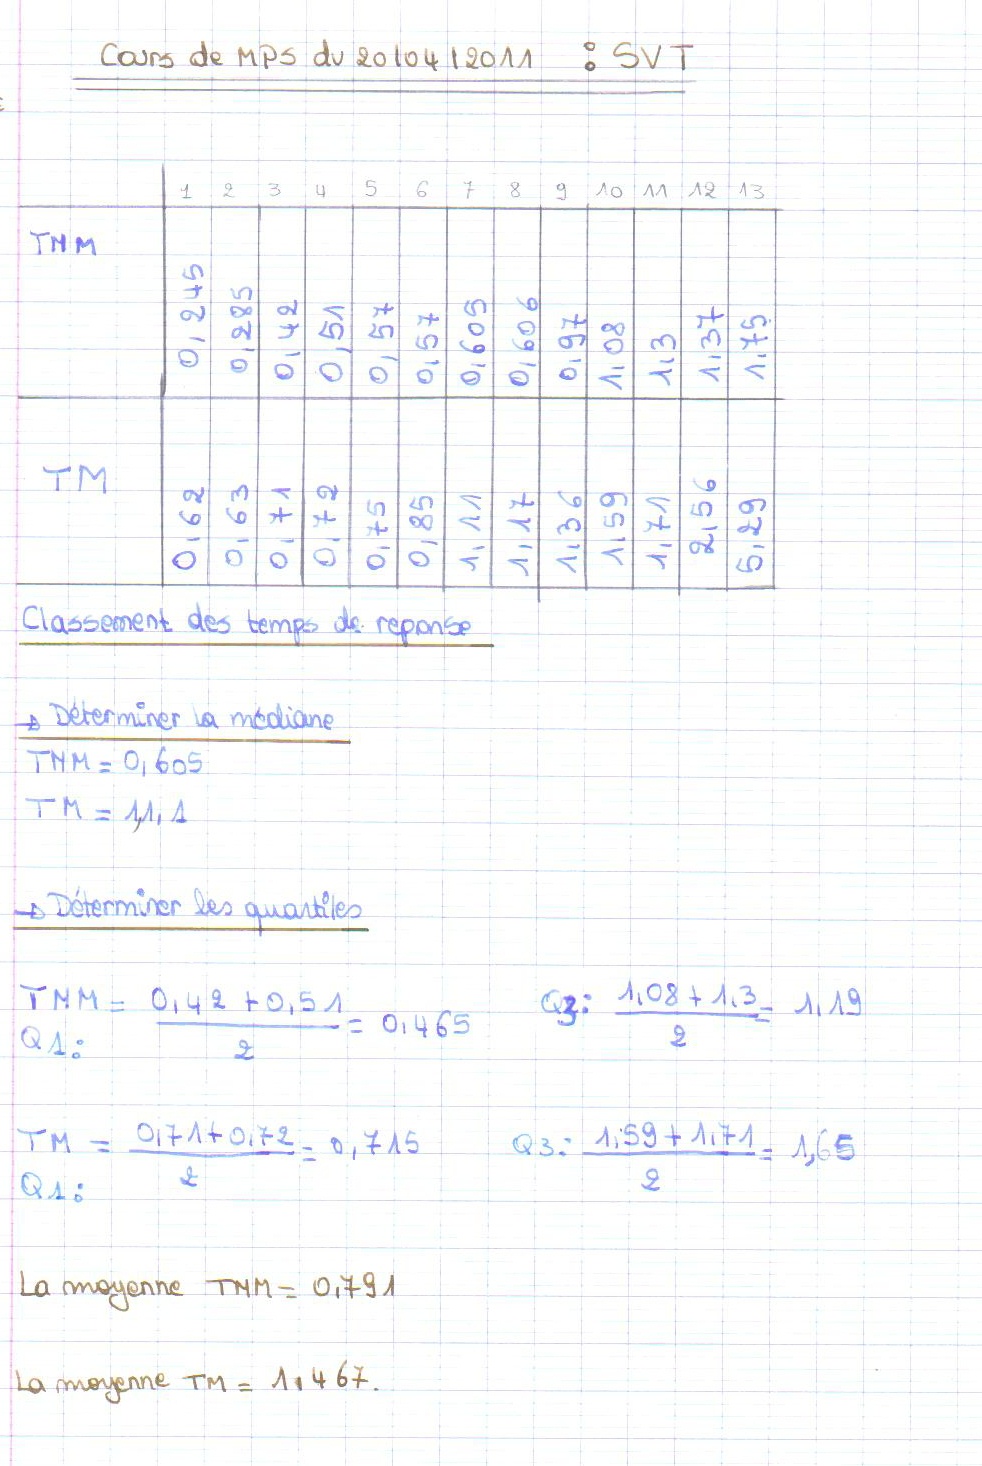 Cours de MPS du 20/04/2011 : SVT
1 2 3 4 5 6 7 8 9 10 11 12 13
TNM 0,245 0,285 0,42 0,51 0,57 0,57 0,605 0,606 0,97 1,08 1,3 1,37 1,75
TM 0,62 0,63 0,71 0,72 0,75 0,85 1,11 1,17 1,36 1,59 1,71 2,56 5,29
Classement des temps de reponse
→ Déterminer la médiane
TNM = 0,605
TM = 1,1,1
→ Déterminer les quartiles
TNM = 0,42 + 0,51 / 2 = 0,465 Q3: 1,08 + 1,3 / 2 = 1,19
Q1:
TM = 0,71 + 0,72 / 2 = 0,715 Q3: 1,59 + 1,71 / 2 = 1,65
Q1:
La moyenne TNM = 0,791
La moyenne TM = 1,467.